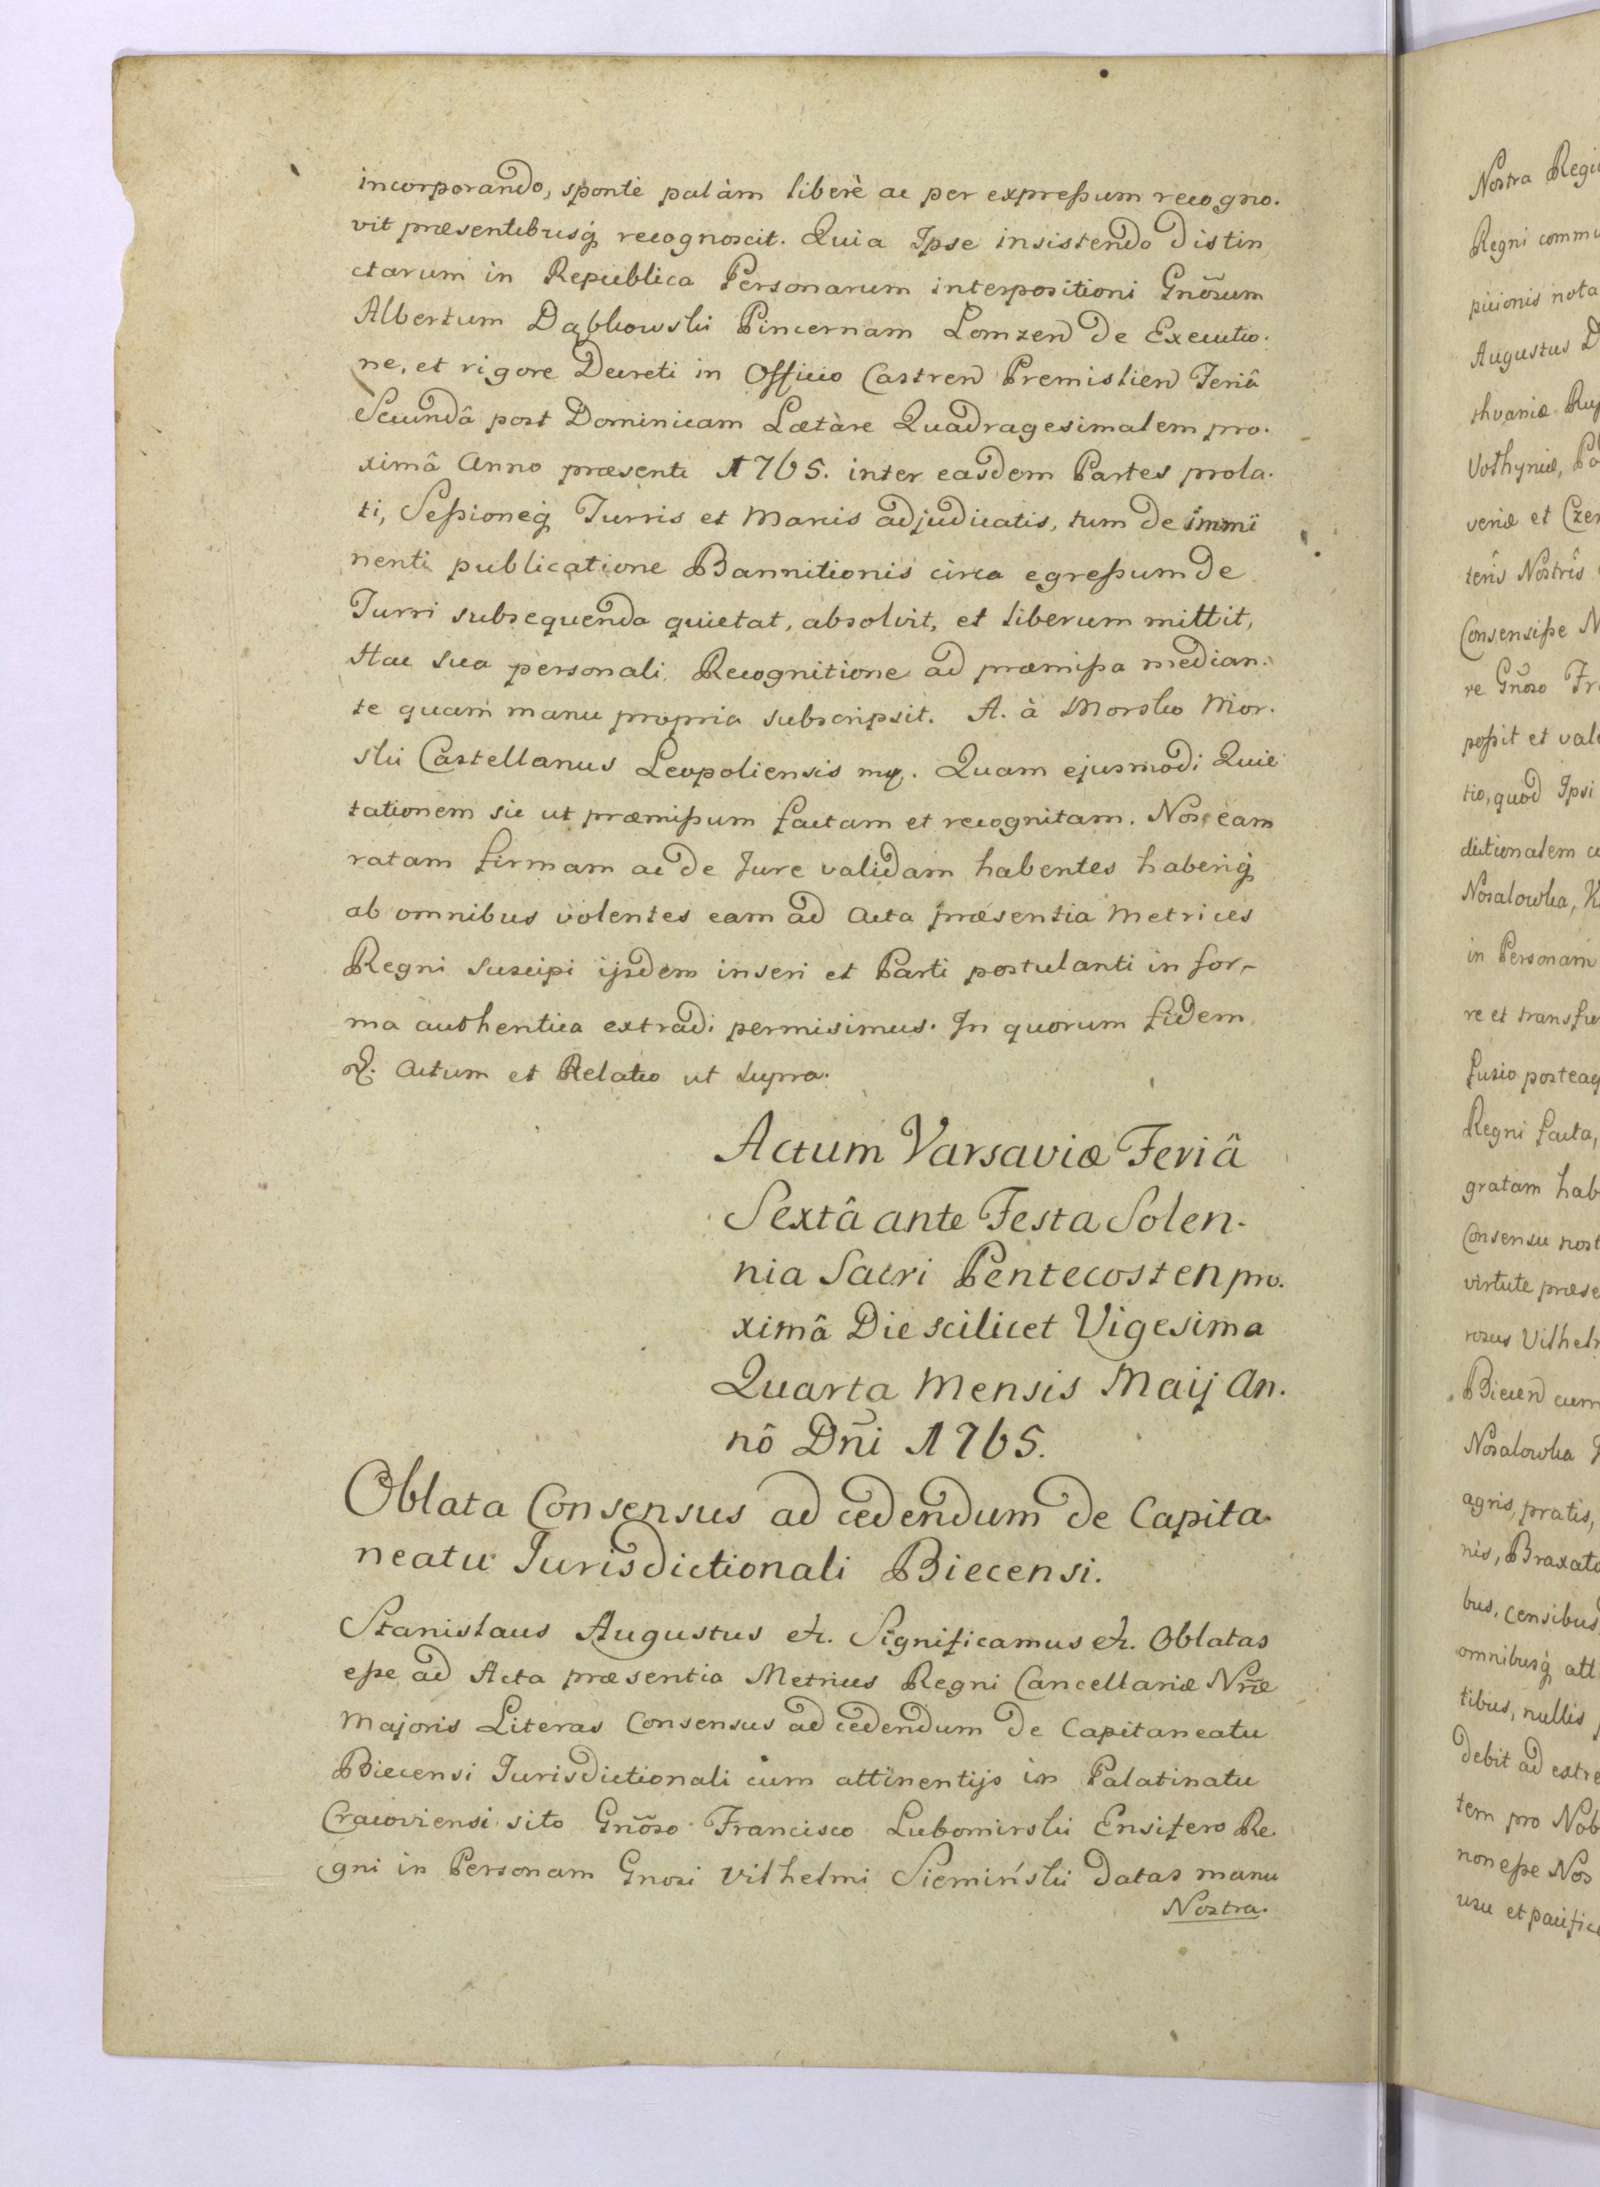 incorporando, spontè palàm liberè ac per expreßum recogno.
vit præsentibusq́ recognoscit. Quia Ipse insistendo distin
ctarum in Republica Personarum interpositioni Gnõsum
Albertum Dąbkowski Pincernam Lomzen de Executio.
ne, et rigore Decreti in Officio Castren Premislien Feriâ
Secundâ post Dominicam Lætàre Quadragesimalem pro.
ximâ Anno præsenti 1765. inter easdem Partes prola.
ti, Seßioneq́ Turris et Marcis adjudicatis, tum de immi
nenti publicatione Bannitionis circa egreßum de
Turri subsequenda quietat, absolvit, et liberum mittit,
Hac sua personali Recognitione ad præmißa median.
te quam manu propria subscripsit. A. à Morsko Mor.
ski Castellanus Leopoliensis mp. Quam ejusmodi Quie
tationem sic ut præmißum factam et recognitam. Nos eam
ratam firmam ac de Jure validam habentes haberiq́
ab omnibus volentes eam ad Acta præsentia Metrices
Regni suscipi ijsdem inseri et Parti postulanti in for-
ma authentica extradi permisimus. In quorum fidem
&. Actum et Relatio ut supra.
Actum Varsaviæ Feriâ
Sextâ ante Festa Solen.
nia Sacri Pentecosten pro.
ximâ Die scilicet Vigesima
Quarta Mensis Maij An.
nô Dñi 1765.
Oblata Consensus ad cedendum de Capita.
neatu Jurisdictionali Biecensi.
Stanislaus Augustus etc. Significamus etc. Oblatas
eße ad Acta præsentia Metrices Regni Cancellariæ Nræ
Majoris Literas Consensus ad cedendum de Capitaneatu
Biecensi Jurisdictionali cum attinentijs in Palatinatu
Cracoviensi sito Gnõso Francisco Lubomirski Ensifero Re
gni in Personam Gnosi Vilhelmi Siemiński datas manu
Nostra.
Nostra
Regni
picionis nota
Augustus
thvaniæ
Volhyniæ,
veriæ et
teris Nostris
Consensiße
re Gnõso
poßit et
tio, quod Ipsi
Nosalowka,
in Personam
re et
Regni facta,
gratam
Consensu
virtute
Biecen cum
Nosalowka
agris, pratis,
bus, censibus
omnibusq́
tibus, nullis
debit ad
tem pro
non eße Nos
usu et